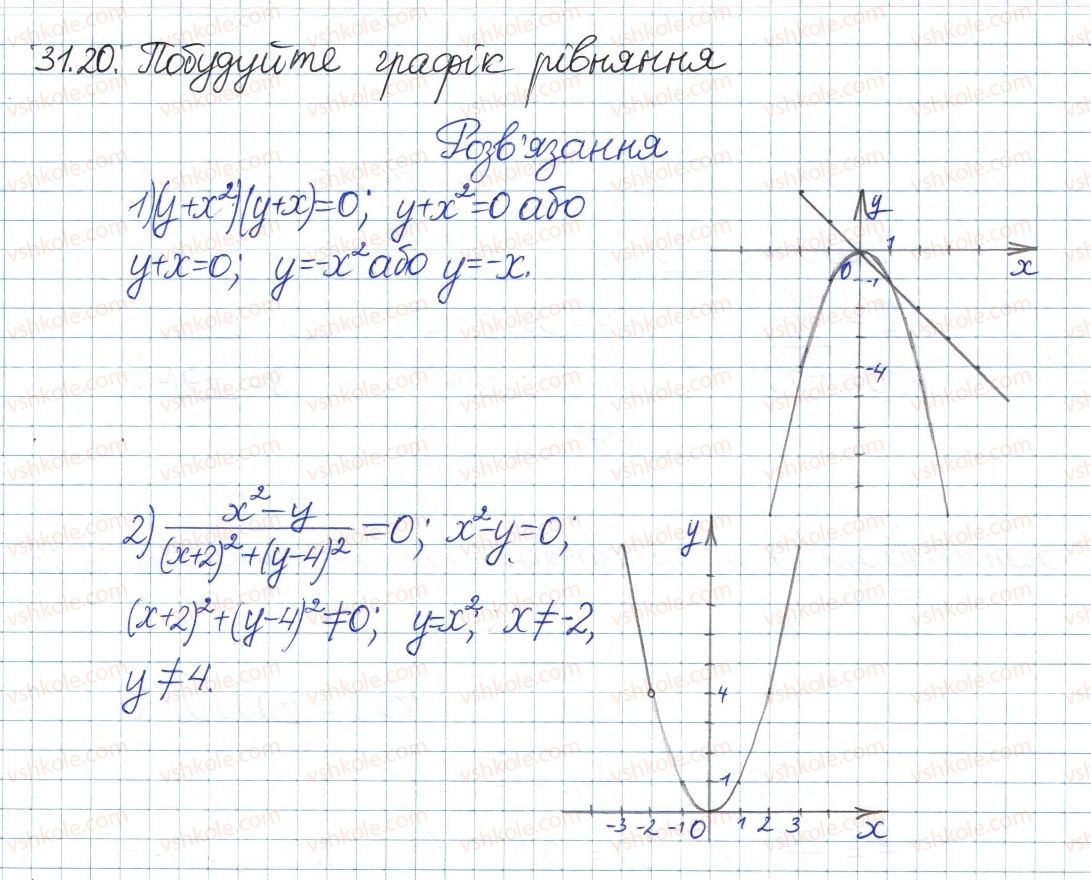 31.20. Побудуйте графік рівняння
Розв'язання
1) (y+x²)(y+x)=0; y+x²=0 або
y+x=0; y=-x² або y=-x.
y
1
0
x
-1
-4
2) (x²-y)/((x+2)²+(y-4)²)=0; x²-y=0;
(x+2)²+(y-4)²≠0; y=x²; x≠-2,
y≠4.
y
4
1
-3 -2 -1 0 1 2 3 x
vshkole.com